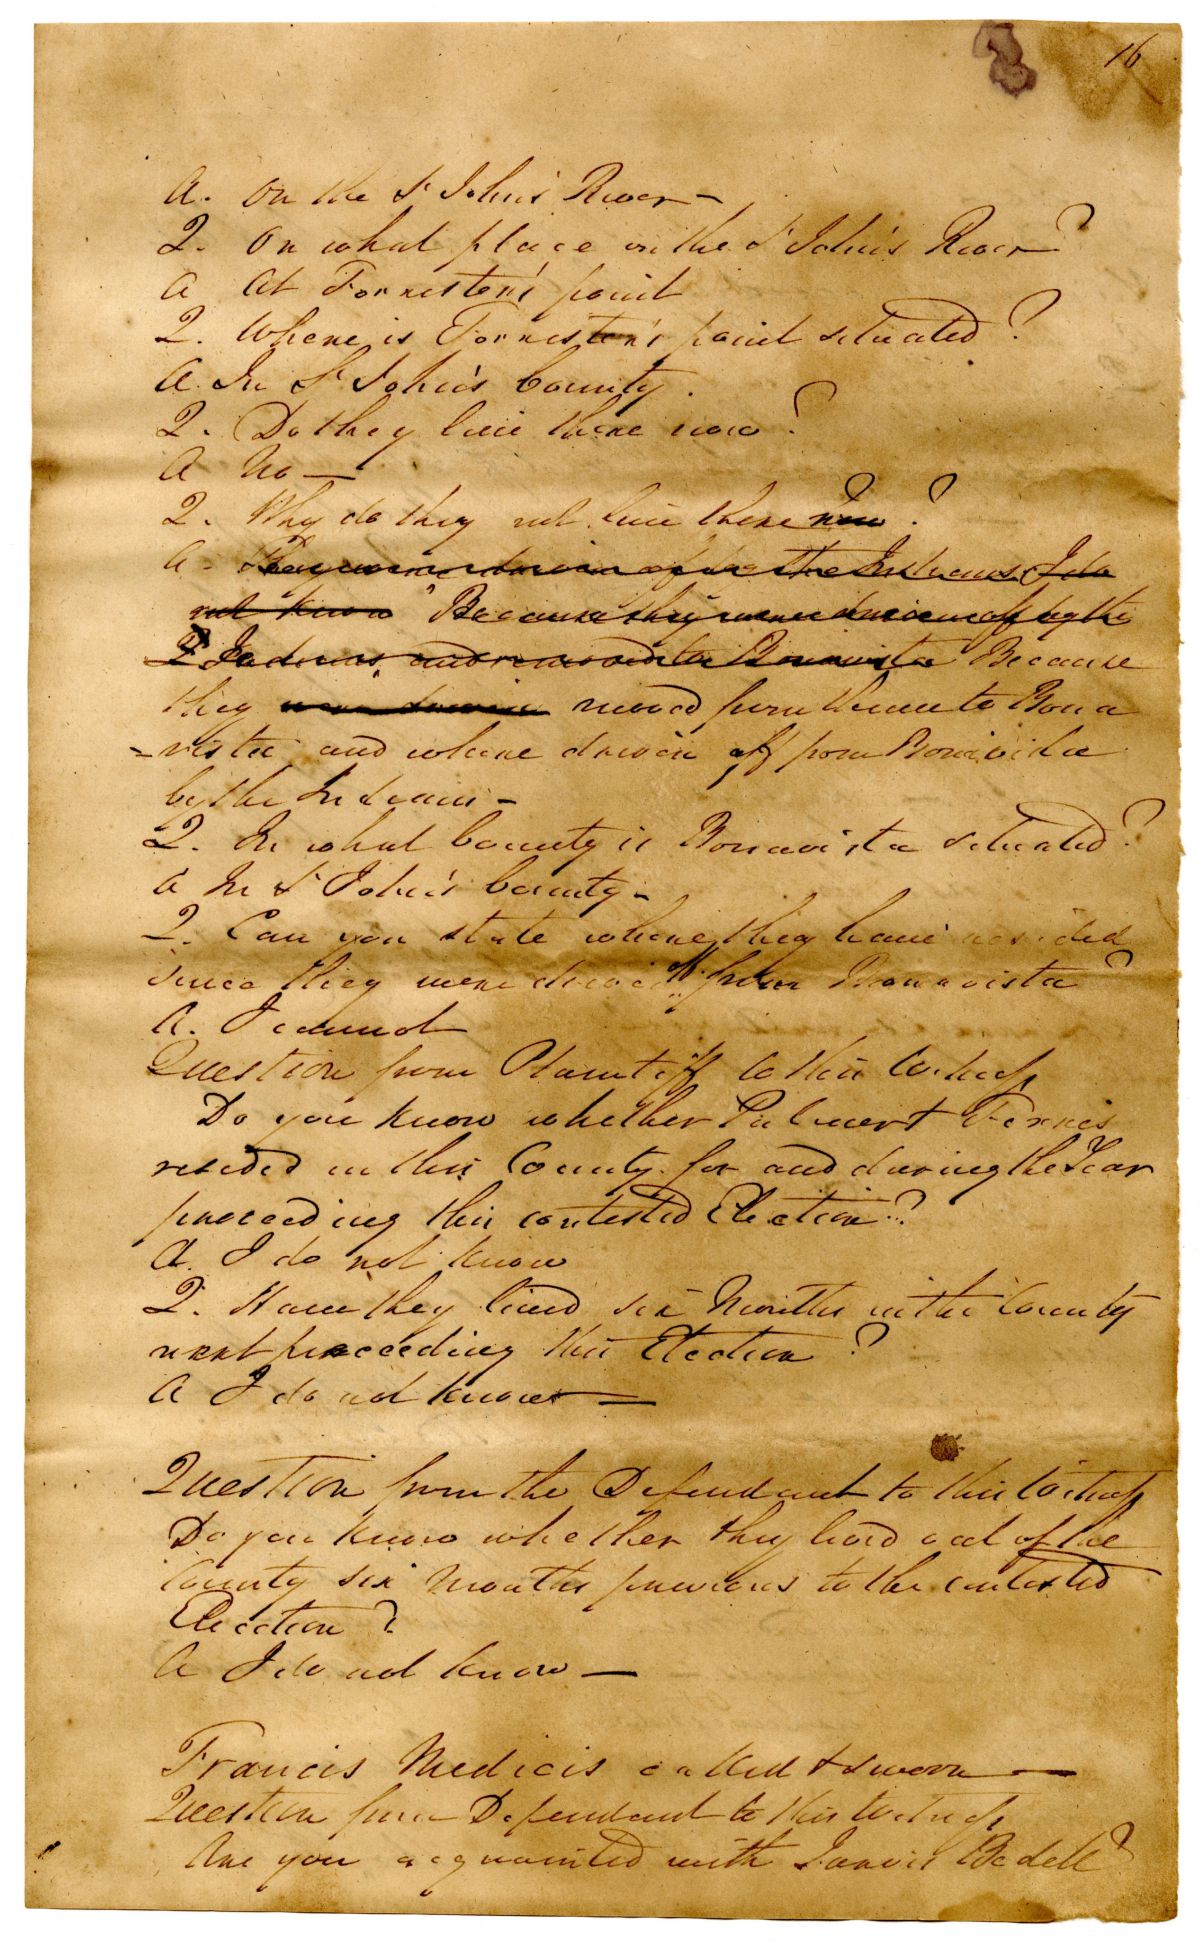 16
A. On the St John's River —
Q. On what place on the St John's River?
A At Forrister's point
Q. Where is Forrister's point situated?
A. In St John's County.
Q. Do they live there now?
A No —
Q. Why do they not live there now?
A. They were driven off by the Indians. I do
not know Because they were driven off by the
Indians and removed to Bonavista Because
they were driven moved from thence to Bona
-vista and where driven off from Bonavista
by the Indians —
Q. In what County is Bonavista situated?
A In St John's County —
Q. Can you state where they have resided
since they were driven off from Bonavista?
A. I cannot
Question from Plaintiff to this Witness
Do you know whether Ferris
resided in this County for and during the Year
preceeding this contested Election?
A. I do not know
Q. Have they lived six Months in the County
next preceeding this Election?
A I do not know —
Question from the Defendant to this Witness
Do you know whether they lived out of the
County six Months previous to the contested
Election?
A I do not know —
Francis Medicis called & sworn —
Question from Defendant to this Witness
Are you acquainted with Jarvis Bedell?